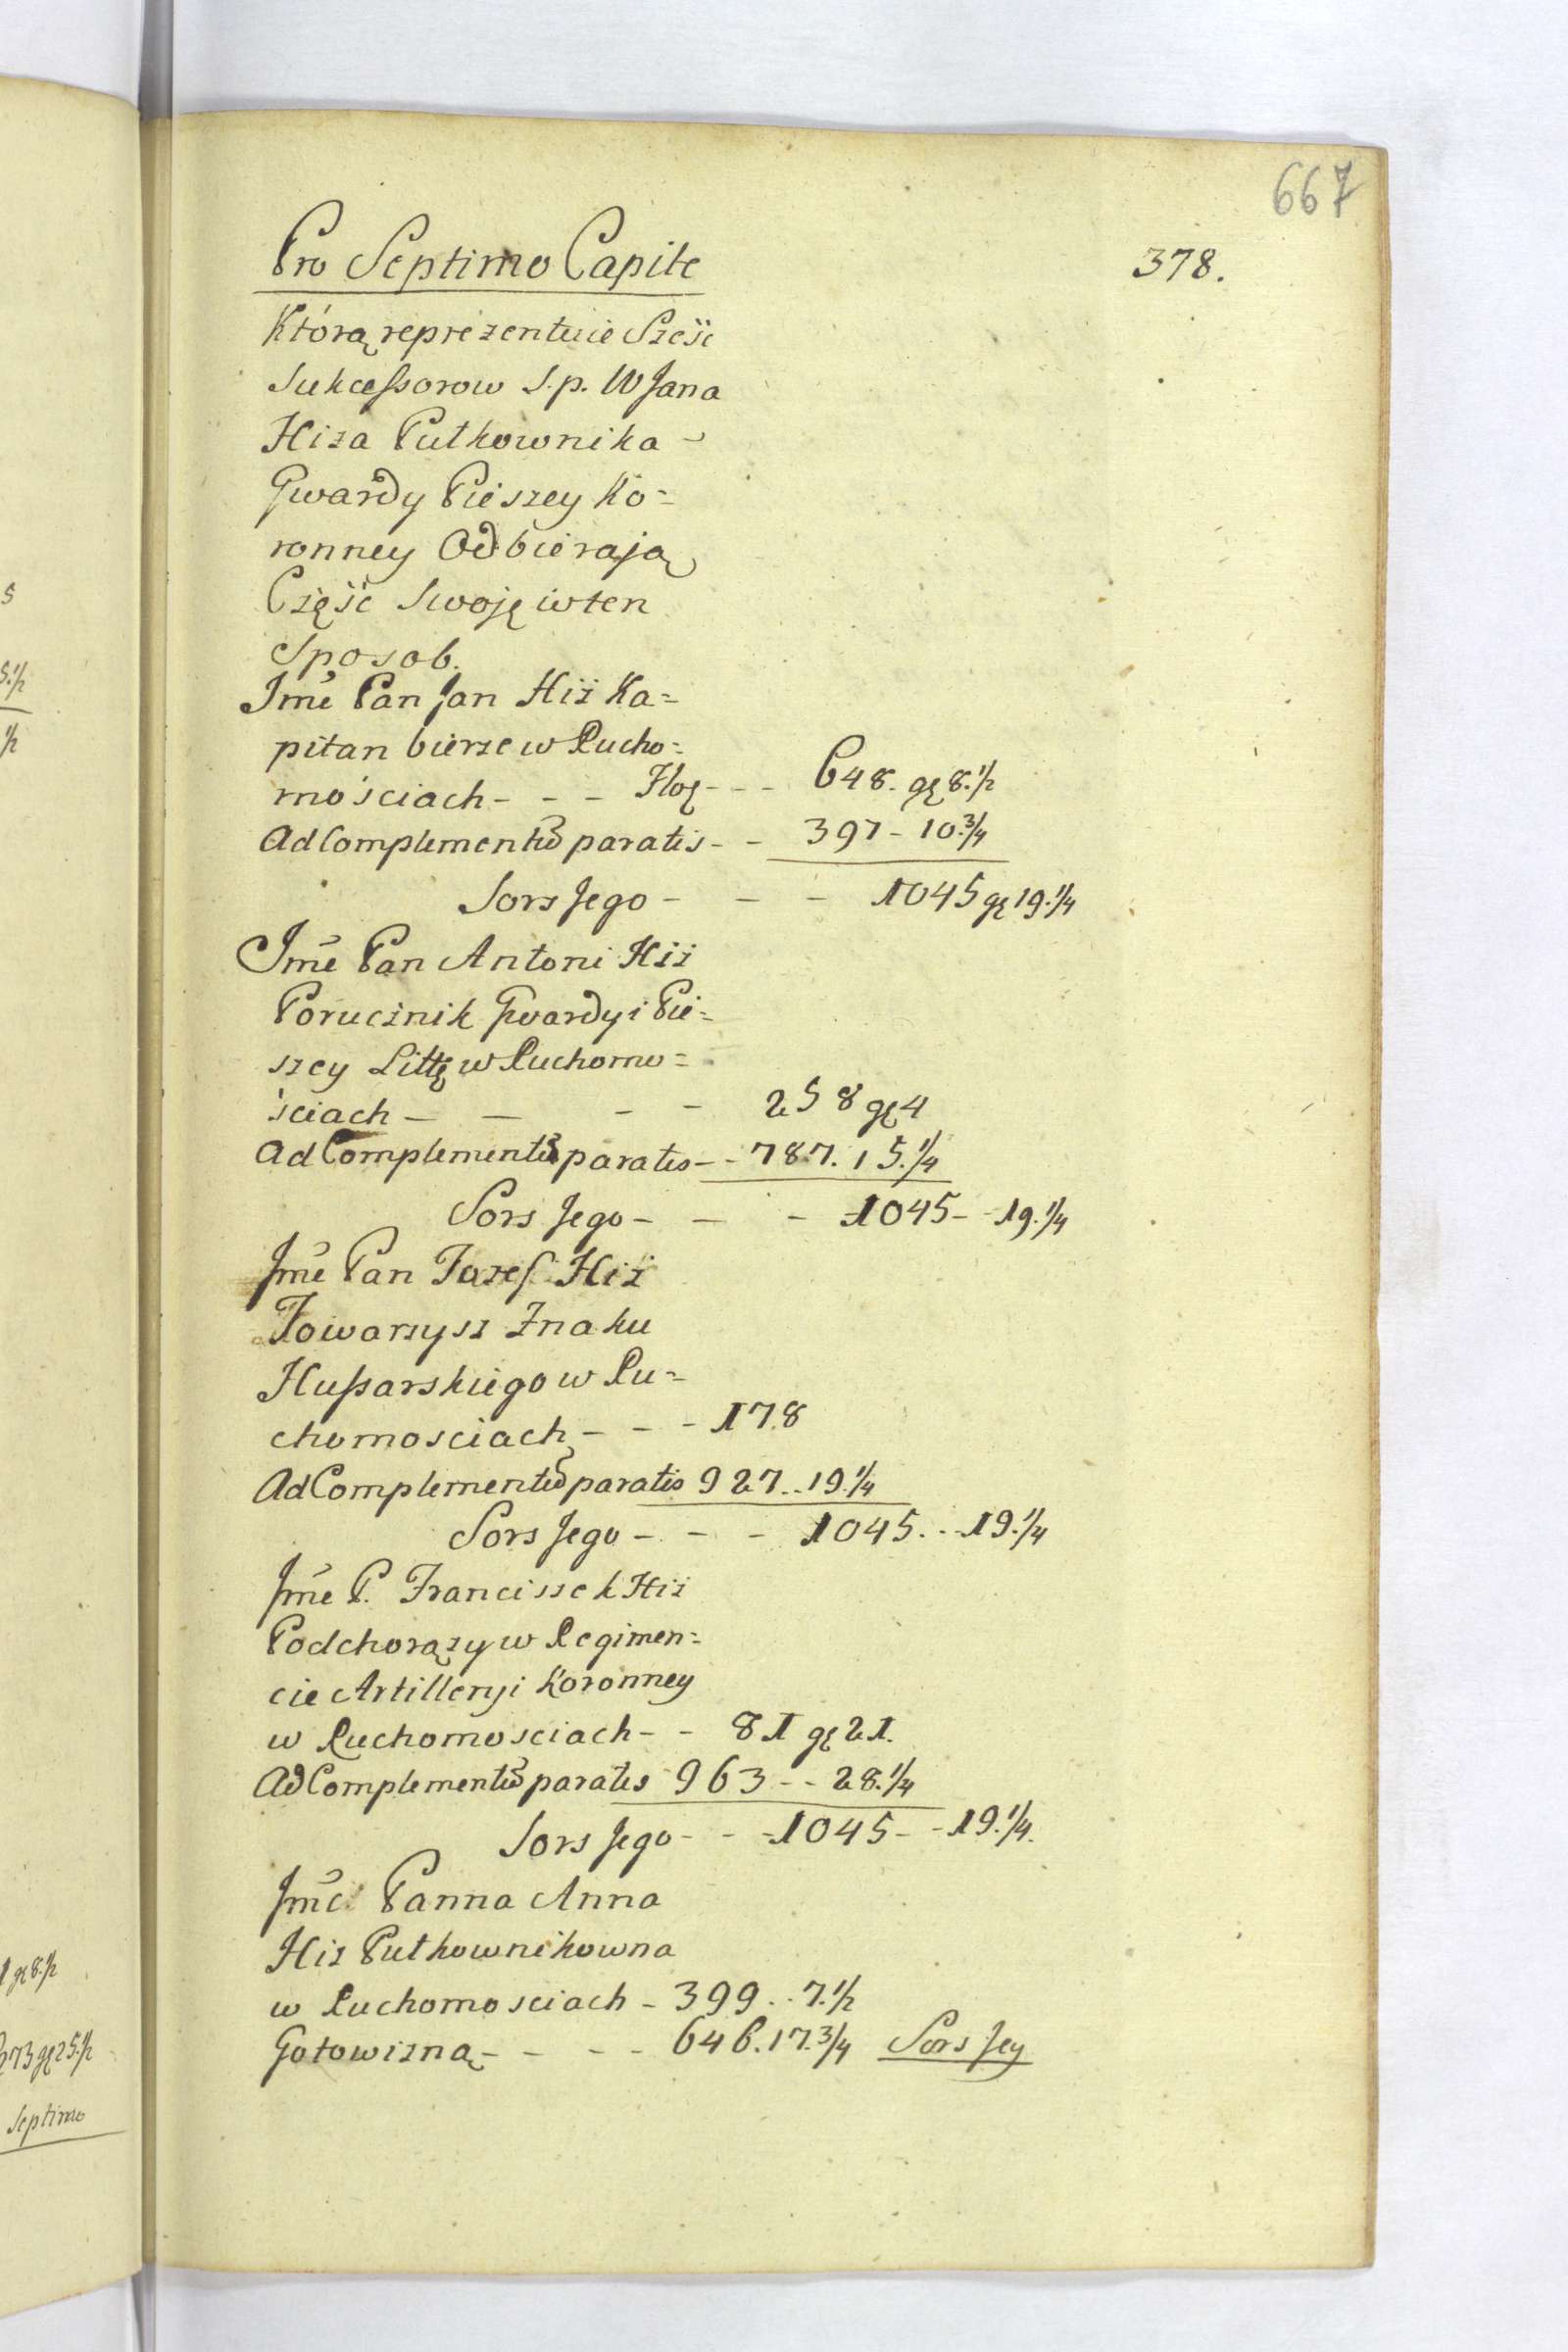 667
378.
Pro Septimo Capite
Którą reprezentuie Sześc
Sukceſsorow S.p. W Jana
Hiża Pułkownika
Gwardy Pieszey Ko=
ronney Odbierają
Część Swoję w ten
Sposob.
Jmć Pan Jan Hiż Ka=
pitan bierze w Rucho=
mościach - - - Złoł - - - 648. gł 8.1/2
Ad Complementũ paratis - - 397 - 10.3/4
Sors Jego - - - 1045 gł 19.1/4
Jmć Pan Antoni Hiż
Porucżnik Gwardyi Pie=
szey Littę w Ruchomo=
ściach - - - - 258 gł 4
Ad Complementũ paratis - - 787. 15.1/4
Sors Jego - - - 1045 - - 19.1/4
Jmć Pan Jozef Hiż
Towarzysz Znaku
Huſsarskiego w Ru=
chomosciach - - - 178
Ad Complementũ paratis 927 .. 19.1/4
Sors Jego - - - 1045 . . . 19.1/4
Jmć P. Franciszek Hiż
Podchorąży w Regimen=
cie Artilleryi Koronney
w Ruchomosciach - - 81 gł 21.
Ad Complementũ paratis 963 - - 28.1/4
Sors Jego - - - 1045 - - 19.1/4.
Jmć Panna Anna
Hiz Pułkownikowna
w Ruchomosciach - 399 . . 7.1/2
Gotowizną - - - - 646. 17.3/4 Sors Jey
5
5.1/2
1/2
1 gł 8.1/2
273 gł 25.1/2
Septimo